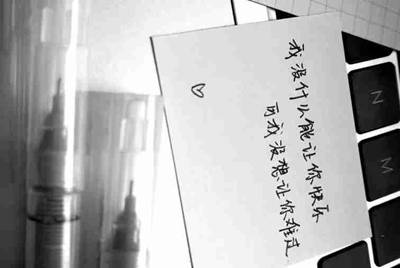 我没什么能让你快乐
可我没想让你难过
N
M